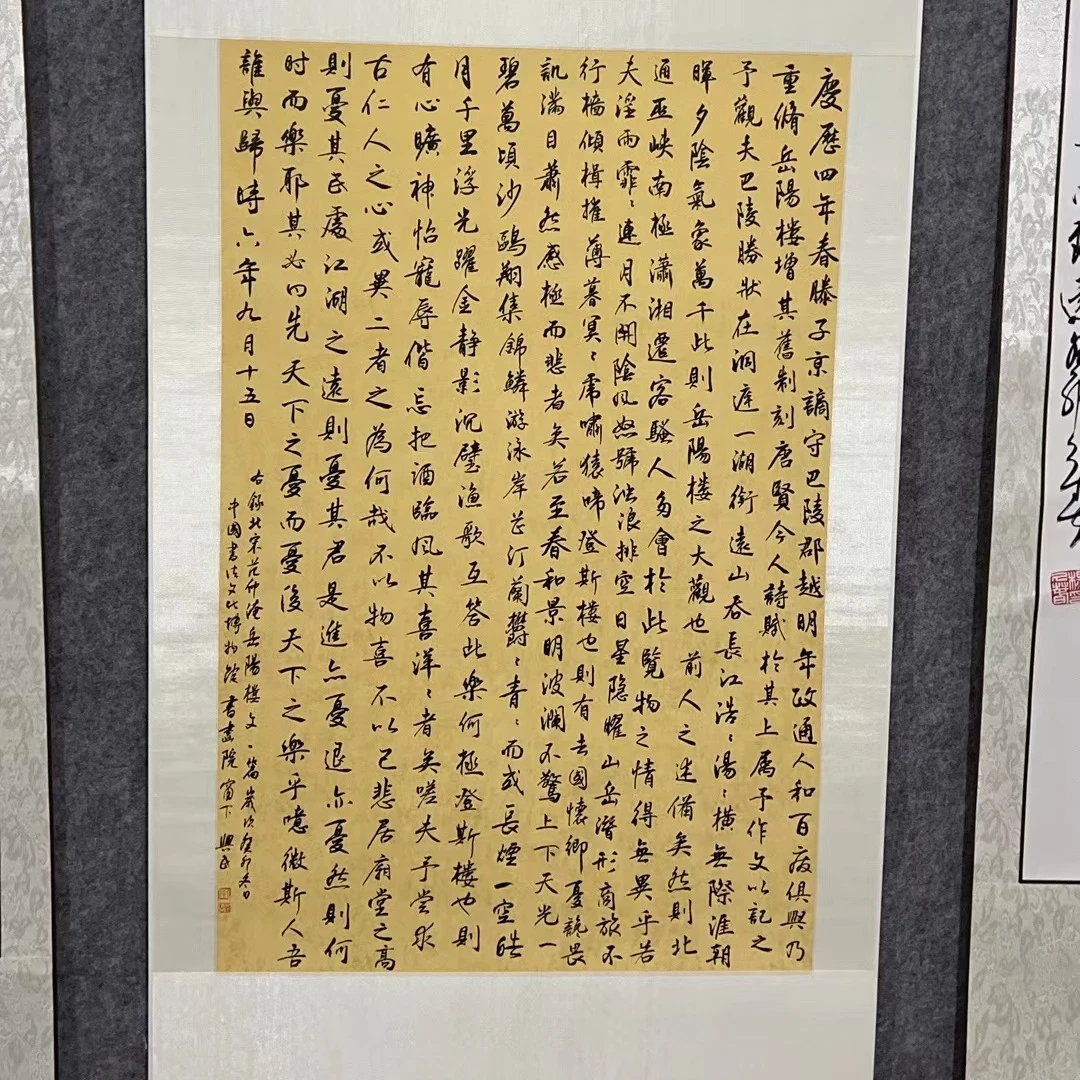 慶歷四年春滕子京謫守巴陵郡越明年政通人和百廢俱興乃
重脩岳陽樓增其舊制刻唐賢今人詩賦於其上属予作文以記之
予觀夫巴陵勝狀在洞庭一湖銜遠山吞長江浩〻湯〻橫無際涯朝
暉夕陰氣象萬千此則岳陽樓之大觀也前人之述俻矣然則北
通巫峽南極瀟湘遷客騷人多會於此覽物之情得無異乎若
夫淫雨霏〻連月不開陰风怒號浊浪排空日星隐曜山岳潛形商旅不
行檣傾楫摧薄暮冥〻虎嘯猿啼登斯樓也則有去國懷鄉憂讒畏
譏滿目蕭然感極而悲者矣若至春和景明波瀾不驚上下天光一
碧萬頃沙鷗翔集錦鱗游泳岸芷汀蘭欝〻青〻而或長煙一空皓
月千里浮光躍金静影沉璧漁歌互答此樂何極登斯樓也則
有心曠神怡寵辱偕忘把酒臨风其喜洋〻者矣嗟夫予尝求
古仁人之心或異二者之為何哉不以物喜不以己悲居廟堂之高
則憂其民處江湖之遠則憂其君是進亦憂退亦憂然則何
时而樂耶其必曰先天下之憂而憂後天下之樂乎噫微斯人吾
誰與歸時六年九月十五日
右錄北宋范仲淹岳陽樓文一篇歲次癸卯冬日
中國書法文化博物館書畫院窗下興民